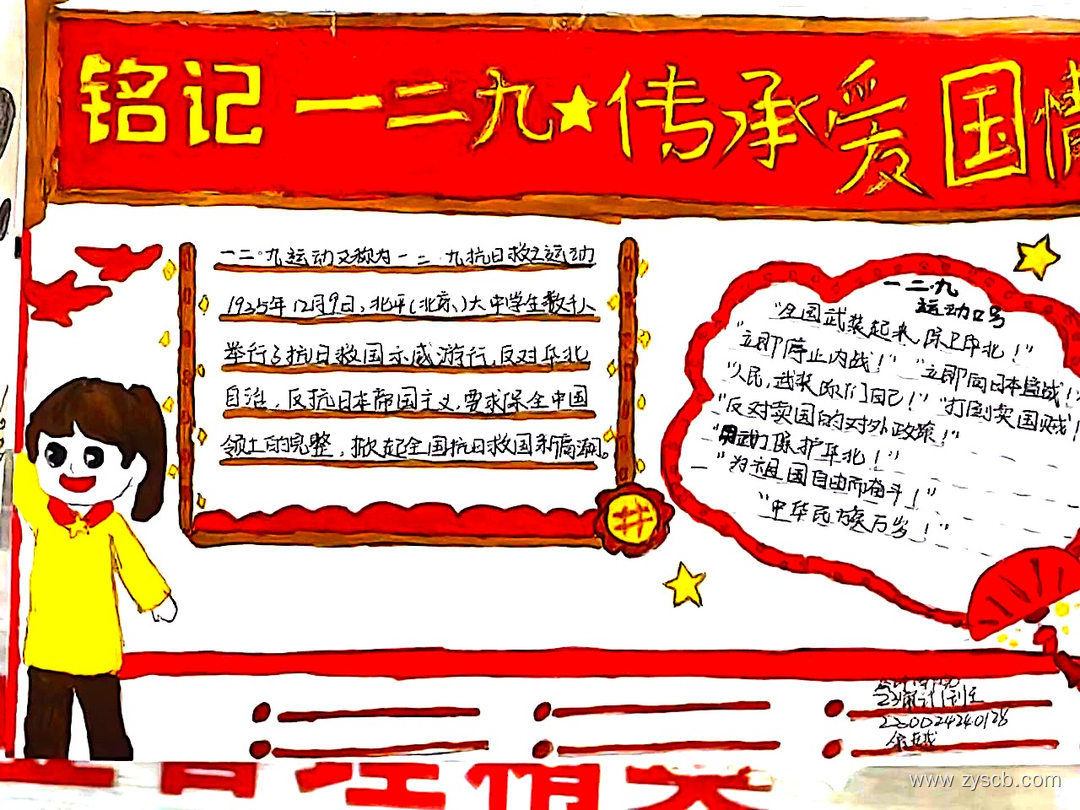 铭记一二九★传承爱国情
一二·九运动又称为一二·九抗日救亡运动
1935年12月9日,北平(北京)大中学生数千人
举行了抗日救国示威游行,反对华北
自治,反抗日本帝国主义,要求保全中国
领土的完整,掀起全国抗日救国新高潮。
一二九
运动口号
"全国武装起来,保卫华北!"
"立即停止内战!" "立即向日本宣战!"
"人民,武装你们自己!" "打倒卖国贼"!
"反对卖国的对外政策!"
"用武力保护华北!"
"为祖国自由而奋斗!"
"中华民族万岁!"
www.zyscb.com